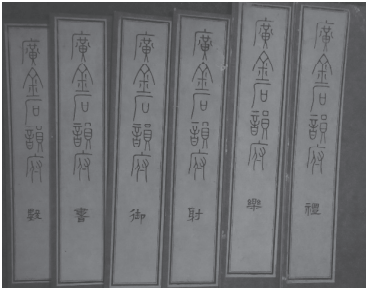 廣金石韻府 禮
廣金石韻府 樂
廣金石韻府 射
廣金石韻府 御
廣金石韻府 書
廣金石韻府 數